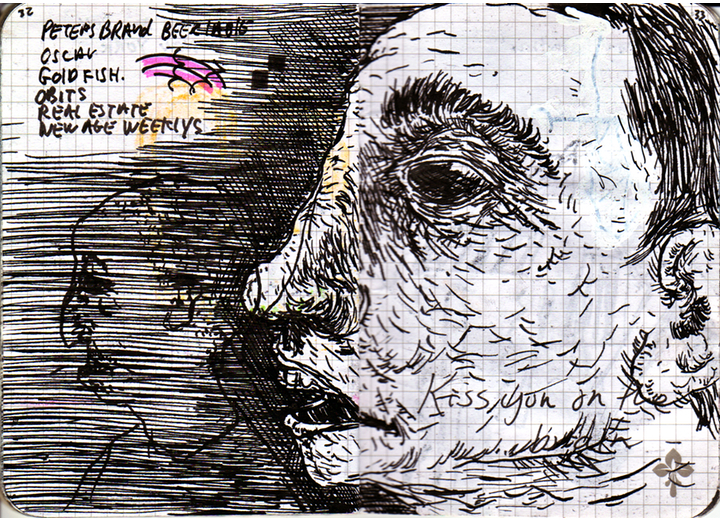 32
33
PETERS BRAND BEER TABLE
OSCAR
GOLDFISH.
OBITS
REAL ESTATE
NEW AGE WEEKLYS
Kiss you on the